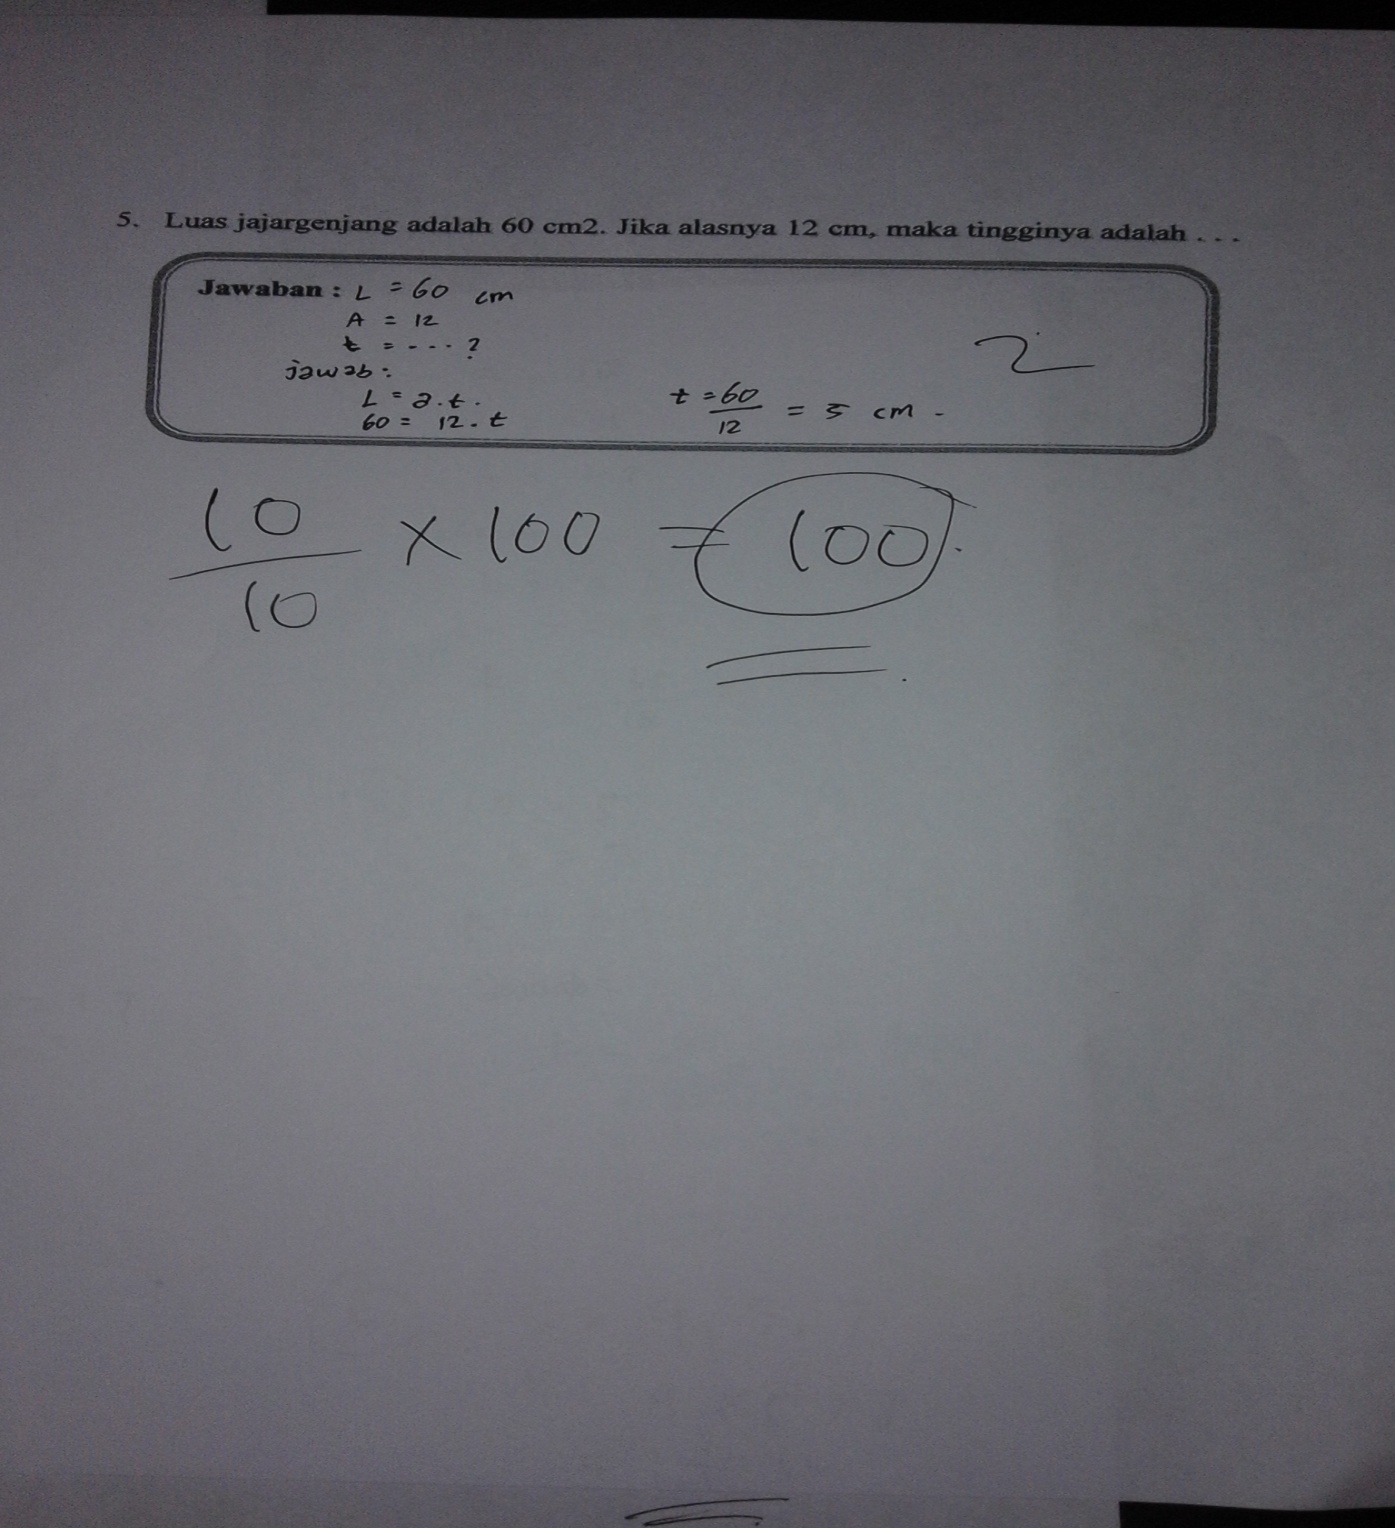 5. Luas jajargenjang adalah 60 cm2. Jika alasnya 12 cm, maka tingginya adalah . . .
Jawaban : L = 60 cm
A = 12
t = - - - ?
jawab :
L = a . t .
60 = 12 . t
t = 60/12 = 5 cm -
2
10/10 x 100 = 100